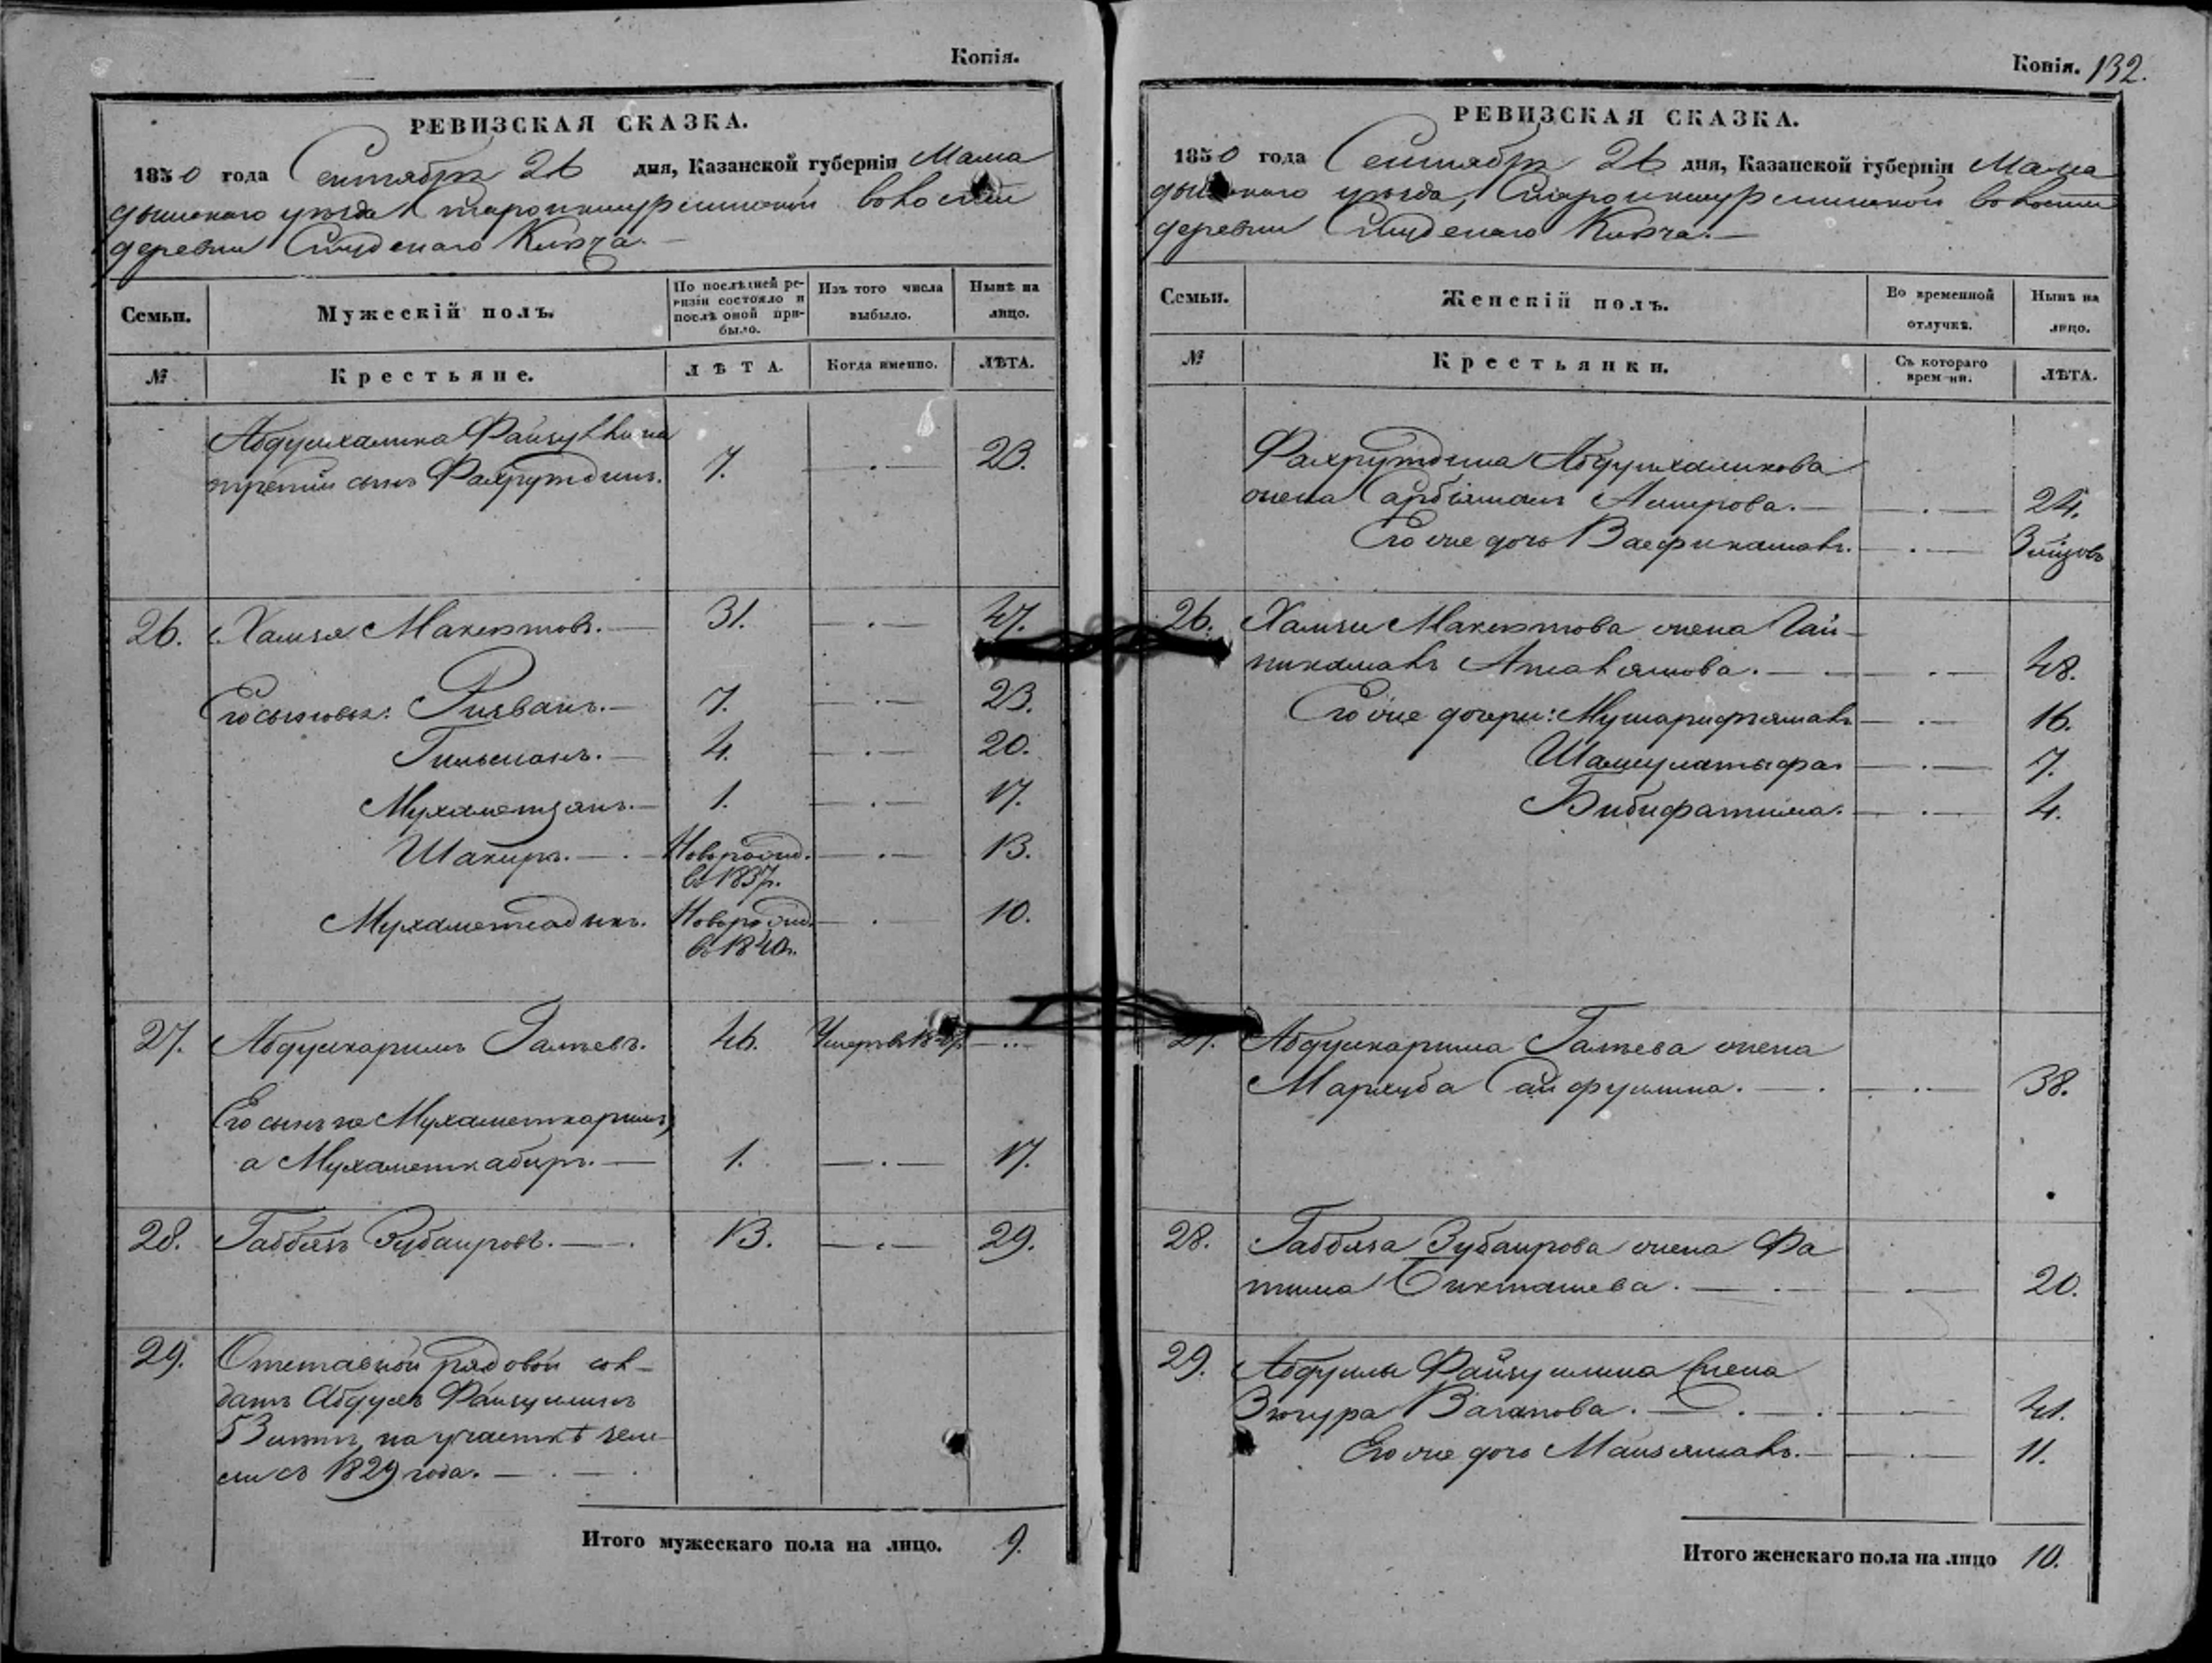 Копія.
РЕВИЗСКАЯ СКАЗКА.
1850 года Сентября 26 дня, Казанской губерніи Мама
дышскаго уѣзда Староикшурминской волости
деревни Студенаго Ключа.
Семьи.
Мужескій полъ.
По послѣдней ре-
визіи состояло и
послѣ оной при-
было.
Изъ того числа
выбыло.
Нынѣ на
лицо.
№
Крестьяне.
ЛѢТА.
Когда именно.
ЛѢТА.
Абдулхалика Файзуллина
третій сынъ Фахрутдинъ. 7. 23.
26. Хамзя Максютовъ. 31. 47.
Его сыновья: Ризванъ. 7. 23.
Гильманъ. 4. 20.
Мухаметзянъ. 1. 17.
Шакиръ. Новорожд. 13.
въ 1837г.
Мухаметсадыкъ. Новорожд. 10.
въ 1840г.
27. Абдулкаримъ Галѣевъ. 46. Умеръ въ
Его сынъ не Мухаметкаримъ,
а Мухаметкабиръ. 1. 17.
28. Габбязъ Зубаировъ. 13. 29.
29. Отставной рядовой сол-
датъ Абдулъ Файзуллинъ
53 лѣтъ, на участкѣ зем-
ли съ 1829 года.
Итого мужескаго пола на лицо. 9.
Копія. 132.
РЕВИЗСКАЯ СКАЗКА.
1850 года Сентября 26 дня, Казанской губерніи Мама
дышскаго уѣзда, Староикшурминской волости
деревни Студенаго Ключа.
Семьи.
Женскій полъ.
Во временной
отлучкѣ.
Нынѣ на
лицо.
№
Крестьянки.
Съ котораго
времени.
ЛѢТА.
Фахрутдина Абдулхаликова
жена Сарбіямалъ Амирова. 24.
Его же дочь Васфикамалъ. 3 мѣсцовъ
26. Хамзи Максютова жена Гай-
никамалъ 48.
Его же дочери: Мушарифзямалъ 16.
Шамулатыфа 7.
Бибифатима. 4.
27. Абдулкарима Галѣева жена
Мархуба Сайфуллина. 38.
28. Габбяза Зубаирова жена Фа
тима Бикташева. 20.
29. Абдуллы Файзуллина жена
Зюгура Вагапова. 41.
Его же дочь Маизямалъ. 11.
Итого женскаго пола на лицо 10.